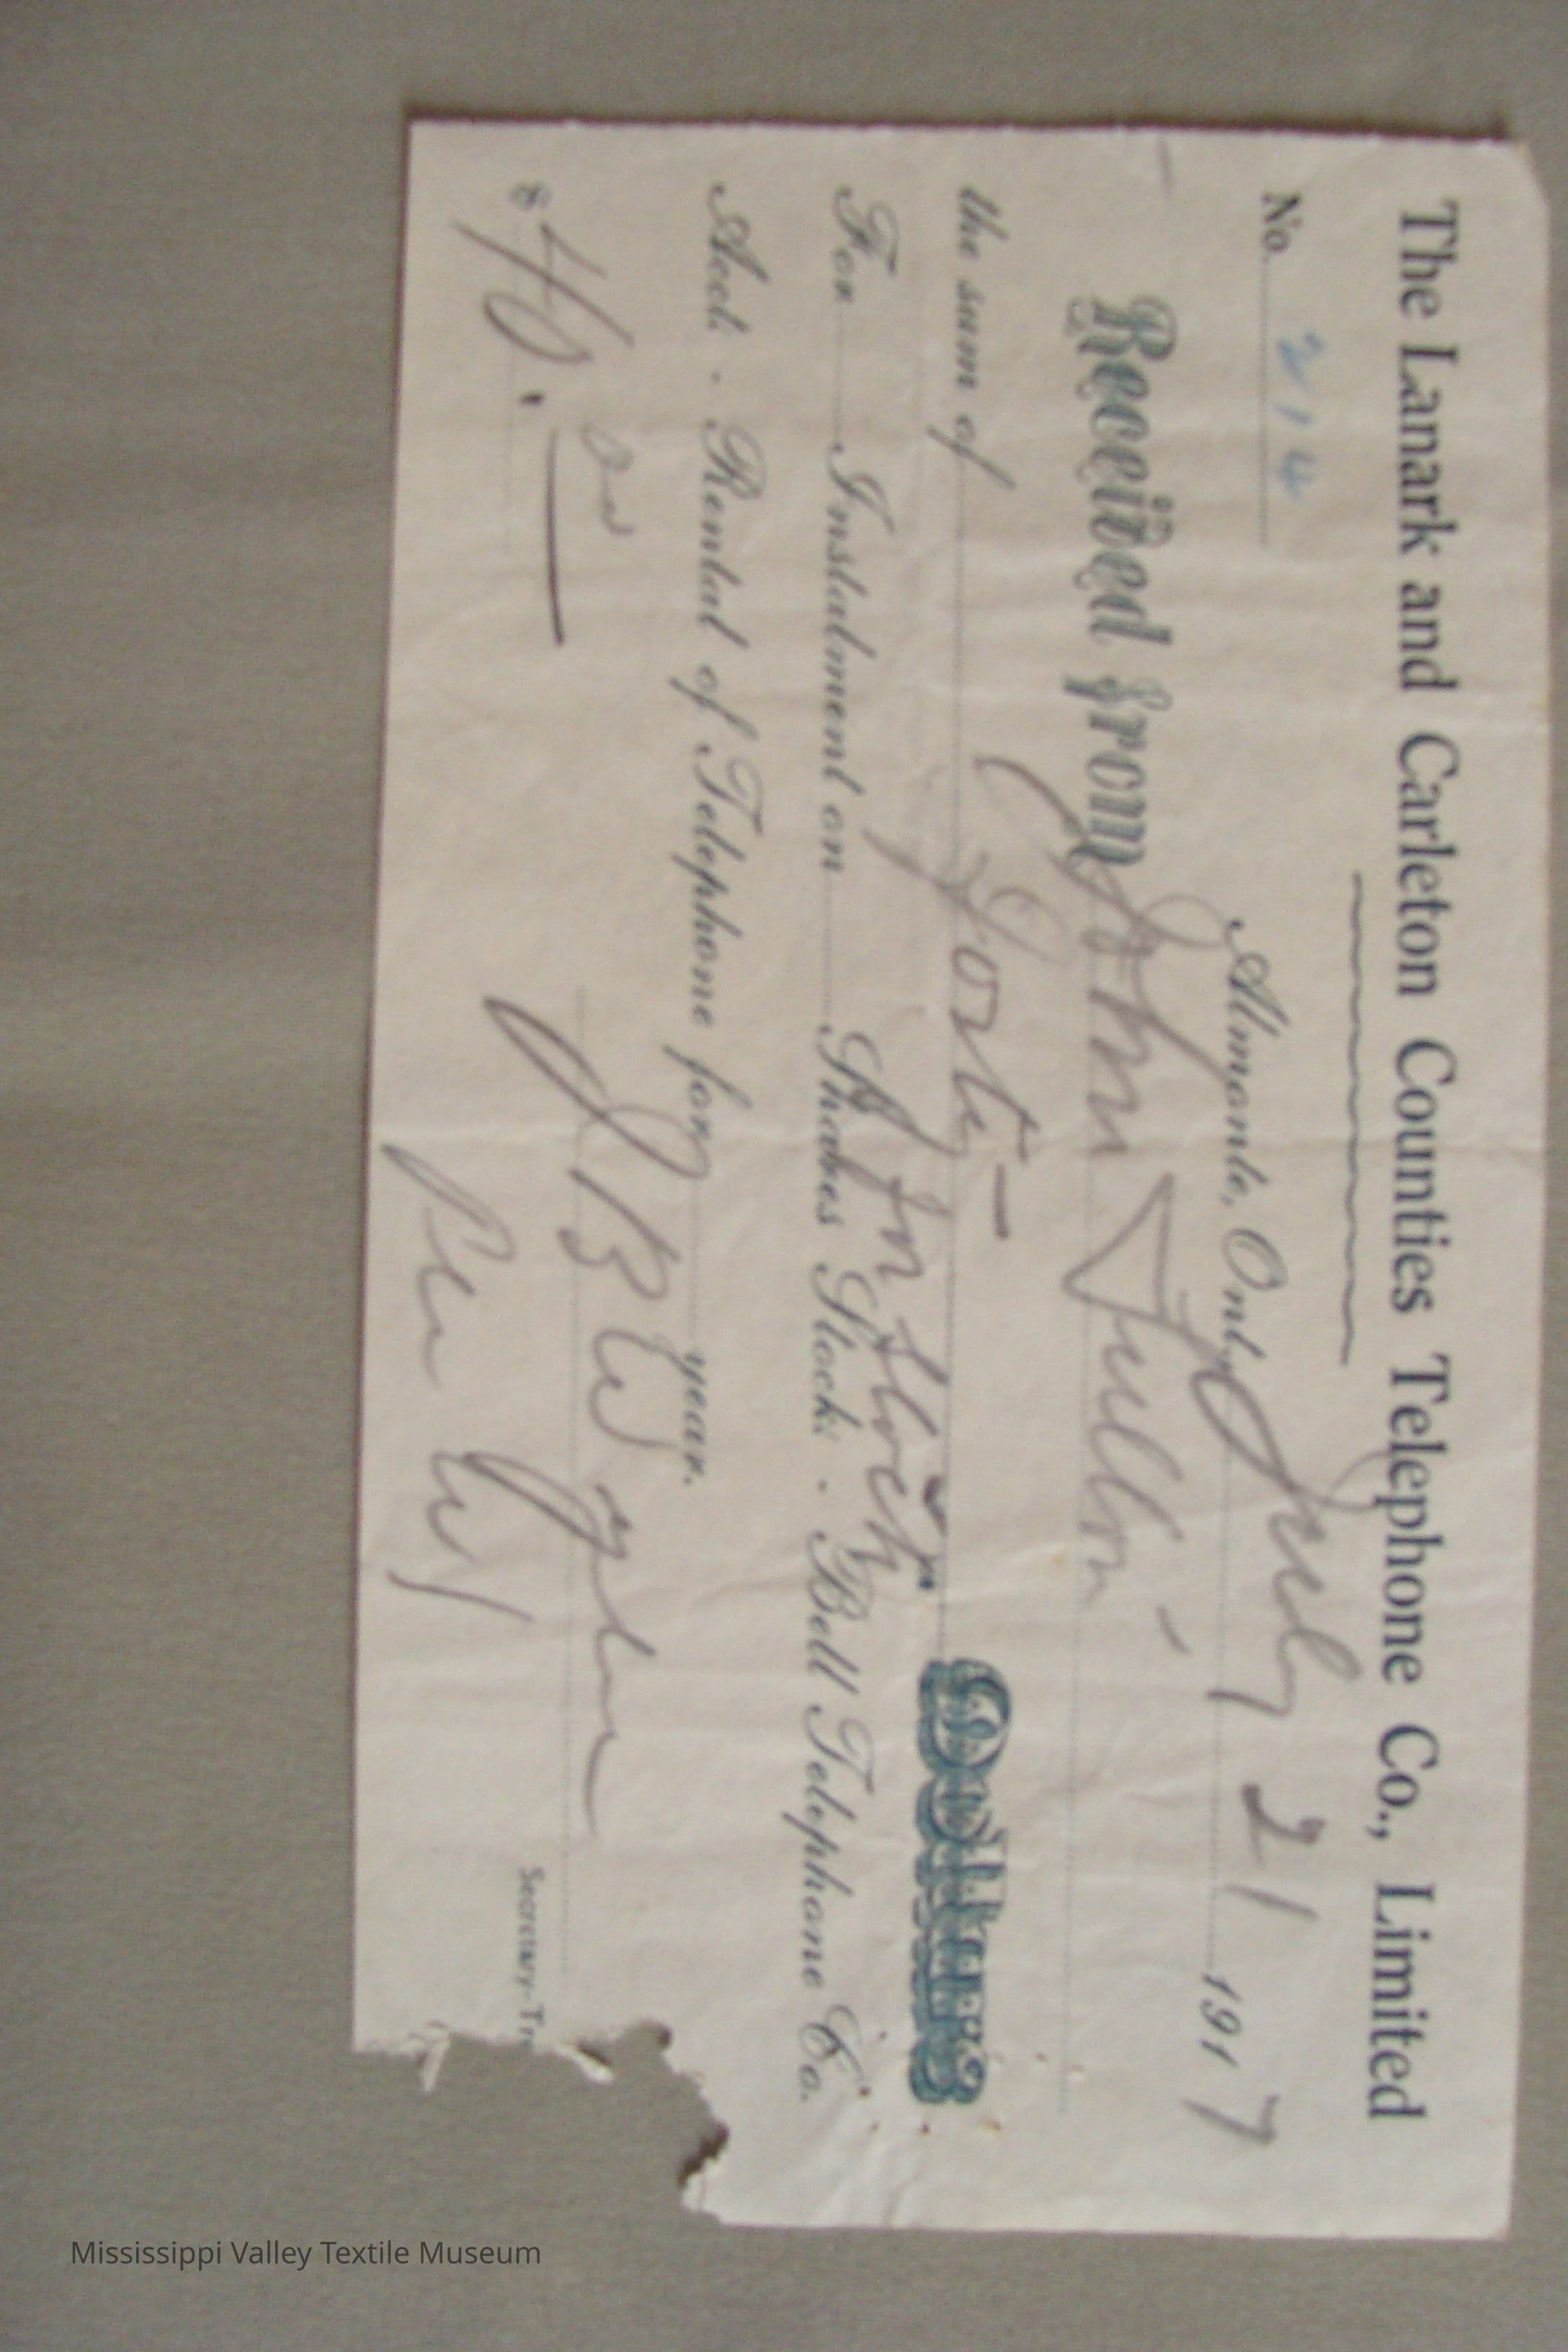 The Lanark and Carleton Counties Telephone Co., Limited
No. 214
Almonte, Ont., July 21 1917
Received from John
the sum of Forty - Dollars
For Instalment on Shares Stock. Bell Telephone Co.
In stock
Acct. Rental of Telephone for year.
$40.00
J B W
Per W
Secretary-Tr
Mississippi Valley Textile Museum